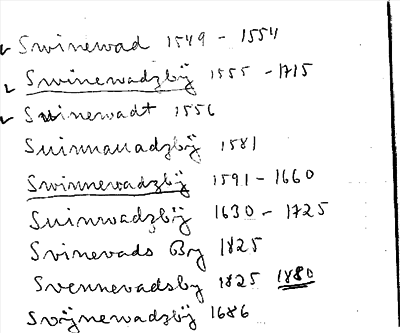 Swinewad 1549 - 1554
Swinewadzbÿ 1555 - 1715
Swinewadt 1556
Suinnauadzbÿ 1581
Swinnewadzbÿ 1591 - 1660
Suinwadzbÿ 1630 - 1725
Svinevads By 1825
Svennevadsby 1825 1880
Swÿnewadzbÿ 1686